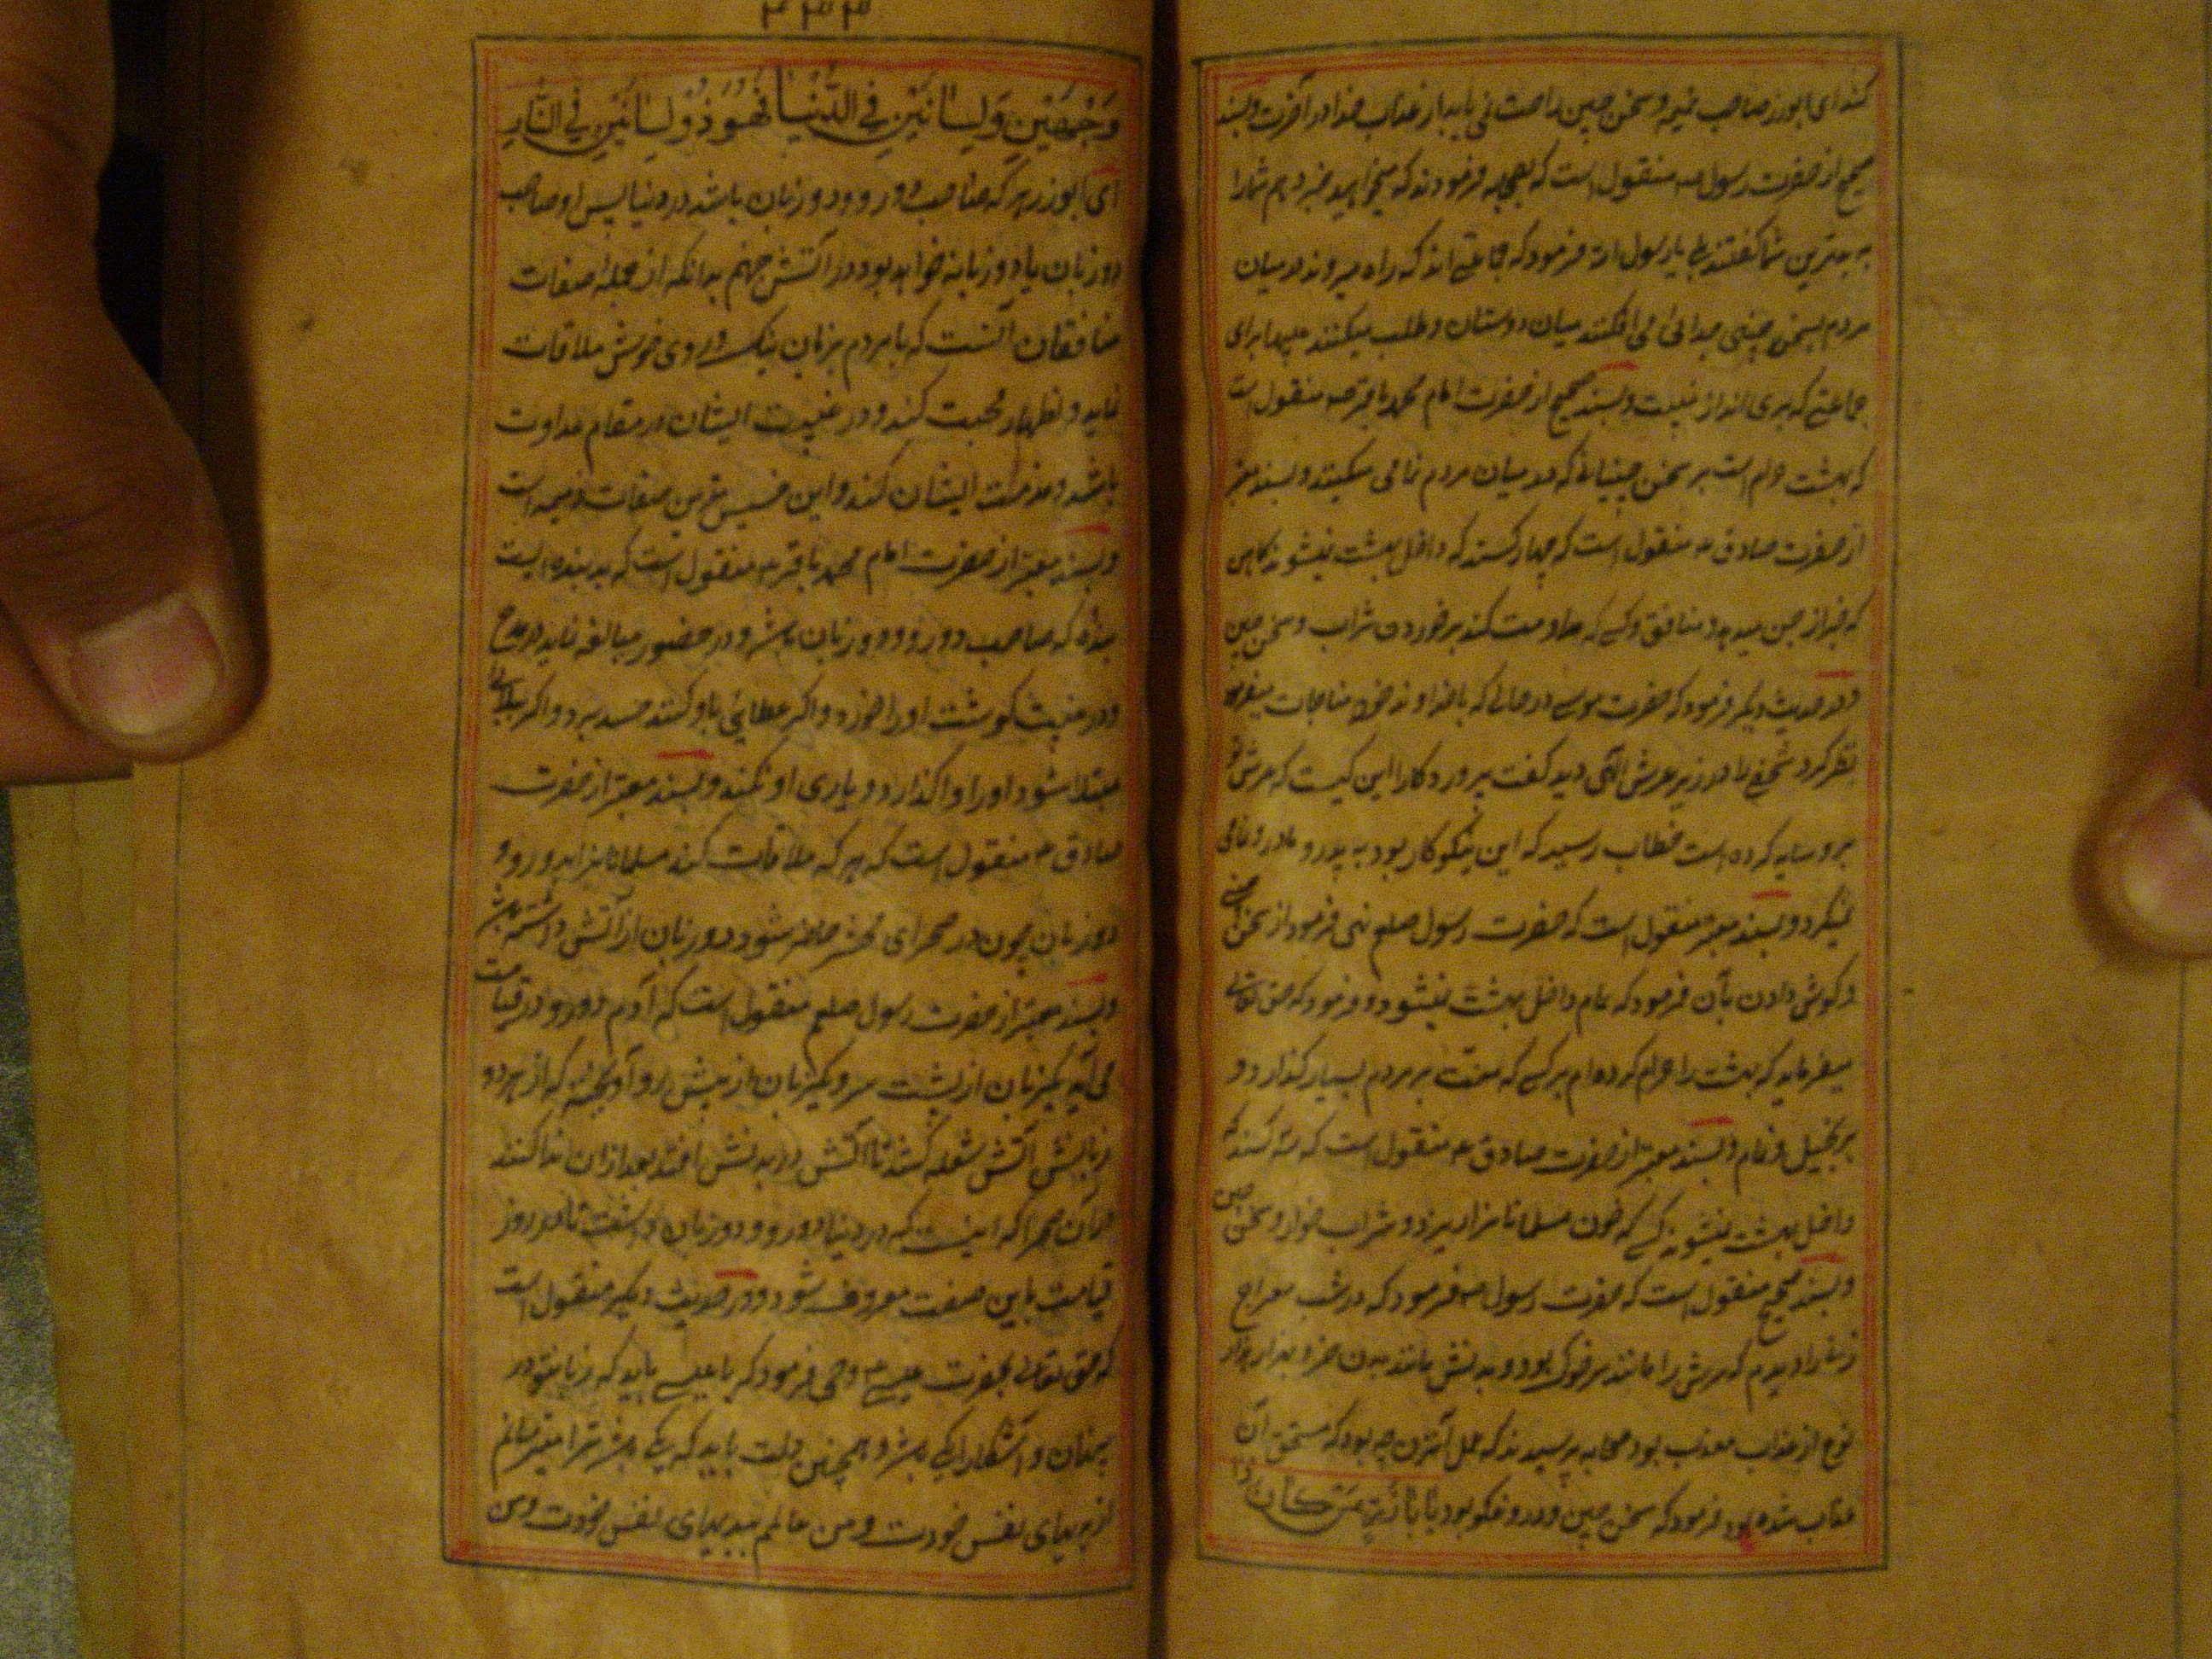 کند ای ابوذر صاحب نمیمه و سخن چین راحت نمی یابد از عذاب خدا در آخرت و بسند
صحیح از حضرت رسول صه منقول است که بصحابه فرمودند که میخواهید خبر دهم شما را
به بدترین شما گفتند بلی یا رسول الله فرمود که جماعتی اند که راه میروند در میان
مردم بسخن چینی جدائی می افکنند میان دوستان و طلب میکنند عیبها برای
جماعتی که بری اند از عیب و بسند صحیح از حضرت امام محمد باقر صه منقول است
که بهشت حرام است بر سخن چینیانی که در میان مردم نمامی میکنند و بسند معتبر
از حضرت صادق عه منقول است که چهار کسند که داخل بهشت نمیشوند کاهن
که خبر از جن میدهد و منافق و کسی که مداومت کند بر خوردن شراب و سخن چین
و در حدیث دیگر فرمود که حضرت موسی در حالی که با خداوند خود مناجات میفرمود
نظر کرد شخصی را در زیر عرش الهی دید گفت پروردگارا این کیست که عرش تو
برو سایه کرده است خطاب رسید که این نیکوکار بود به پدر و مادر و نمامی
نمیکرد و بسند معتبر منقول است که حضرت رسول صلعم نهی فرمود از سخن چینی
و گوش دادن بآن فرمود که نمام داخل بهشت نمیشود و فرمود که حق تعالی
میفرماید که بهشت را حرام کرده ام بر کسی که منت بر مردم بسیار گذارد و
بر بخیل و نمام و بسند معتبر از حضرت صادق عه منقول است که سه کسند که
داخل بهشت نمیشوند کسی که خون مسلمانانرا بریزد و شراب خوار و سخن چین
و بسند صحیح منقول است که حضرت رسول صه فرمود که در شب معراج
زنی را دیدم که سرش را مانند سر خوک بود و بدنش مانند بدن خر و بهزار هزار
نوع از عذاب معذب بود صحابه پرسیدند که عمل آنزن چه بود که مستحق آن
عذاب شده بود فرمود که سخن چین و دروغگو بود یا باذر من کان ذا
۴۳۳
وَجْهَيْنِ وَلِسَانَيْنِ فِي الدُّنْيَا فَهُوَ ذُو لِسَانَيْنِ فِي النَّارِ
ای ابوذر هر که صاحب دو رو و دو زبان باشد در دنیا پس او صاحب
دو زبان یا دو زبانه خواهد بود در آتش جهنم بدانکه از جمله صفات
منافقان آنست که با مردم بزبان نیک و روی خوش ملاقات
نماید و اظهار محبت کند و در غیبت ایشان در مقام عداوت
باشد و مذمت ایشان کند و این خسیس ترین صفات ذمیمه است
و بسند معتبر از حضرت امام محمد باقر عه منقول است که بد بنده ایست
بنده که صاحب دو رو و دو زبان باشد و در حضور مبالغه نماید در مدح
و در غیبت گوشت او را خورد و اگر عطائی باو کنند حسد برد و اگر ببلائی
مبتلا شود او را واگذارد و یاری او نکند و بسند معتبر از حضرت
صادق عه منقول است که هر که ملاقات کند مسلمانانرا بدو رو و
دو زبان چون در صحرای محشر حاضر شود دو زبان از آتش داشته باشد
و بسند معتبر از حضرت رسول صلعم منقول است که آدم دو رو در قیامت
می آید یکزبان از پشت سر و یکزبان از پیش رو آویخته که از هر دو
زبانش آتش شعله کشد تا آتش در بدنش افتد بعد از آن ندا کنند
در آن صحرا که اینست که در دنیا دو رو و دو زبان داشت تا در روز
قیامت باین صفت معروف شود و در حدیث دیگر منقول است
که حق تعالی بحضرت عیسی عه وحی فرمود که یا عیسی باید که زبان تو در
پنهان و آشکارا یکی باشد و همچنین دلت باید که یکی باشد ترا میترسانم
از بدیهای نفس خودت و من عالم ببدیهای نفس خودت و من